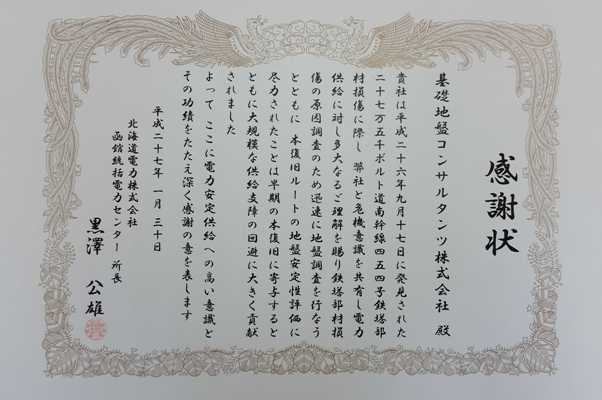 感謝状
基礎地盤コンサルタンツ株式会社 殿
貴社は平成二十六年九月十七日に発見された
二十七万五千ボルト道南幹線四五四号鉄塔部
材損傷に際し 弊社と危機意識を共有し電力
供給に対し多大なるご理解を賜り鉄塔部材損
傷の原因調査のため迅速に地盤調査を行なう
とともに 本復旧ルートの地盤安定性評価に
尽力されたことは早期の本復旧に寄与すると
ともに大規模な供給支障の回避に大きく貢献
されました
よって ここに電力安定供給への高い意識と
その功績をたたえ深く感謝の意を表します
平成二十七年 一月 三十日
北海道電力株式会社
函館統括電力センター 所長
黒澤 公雄